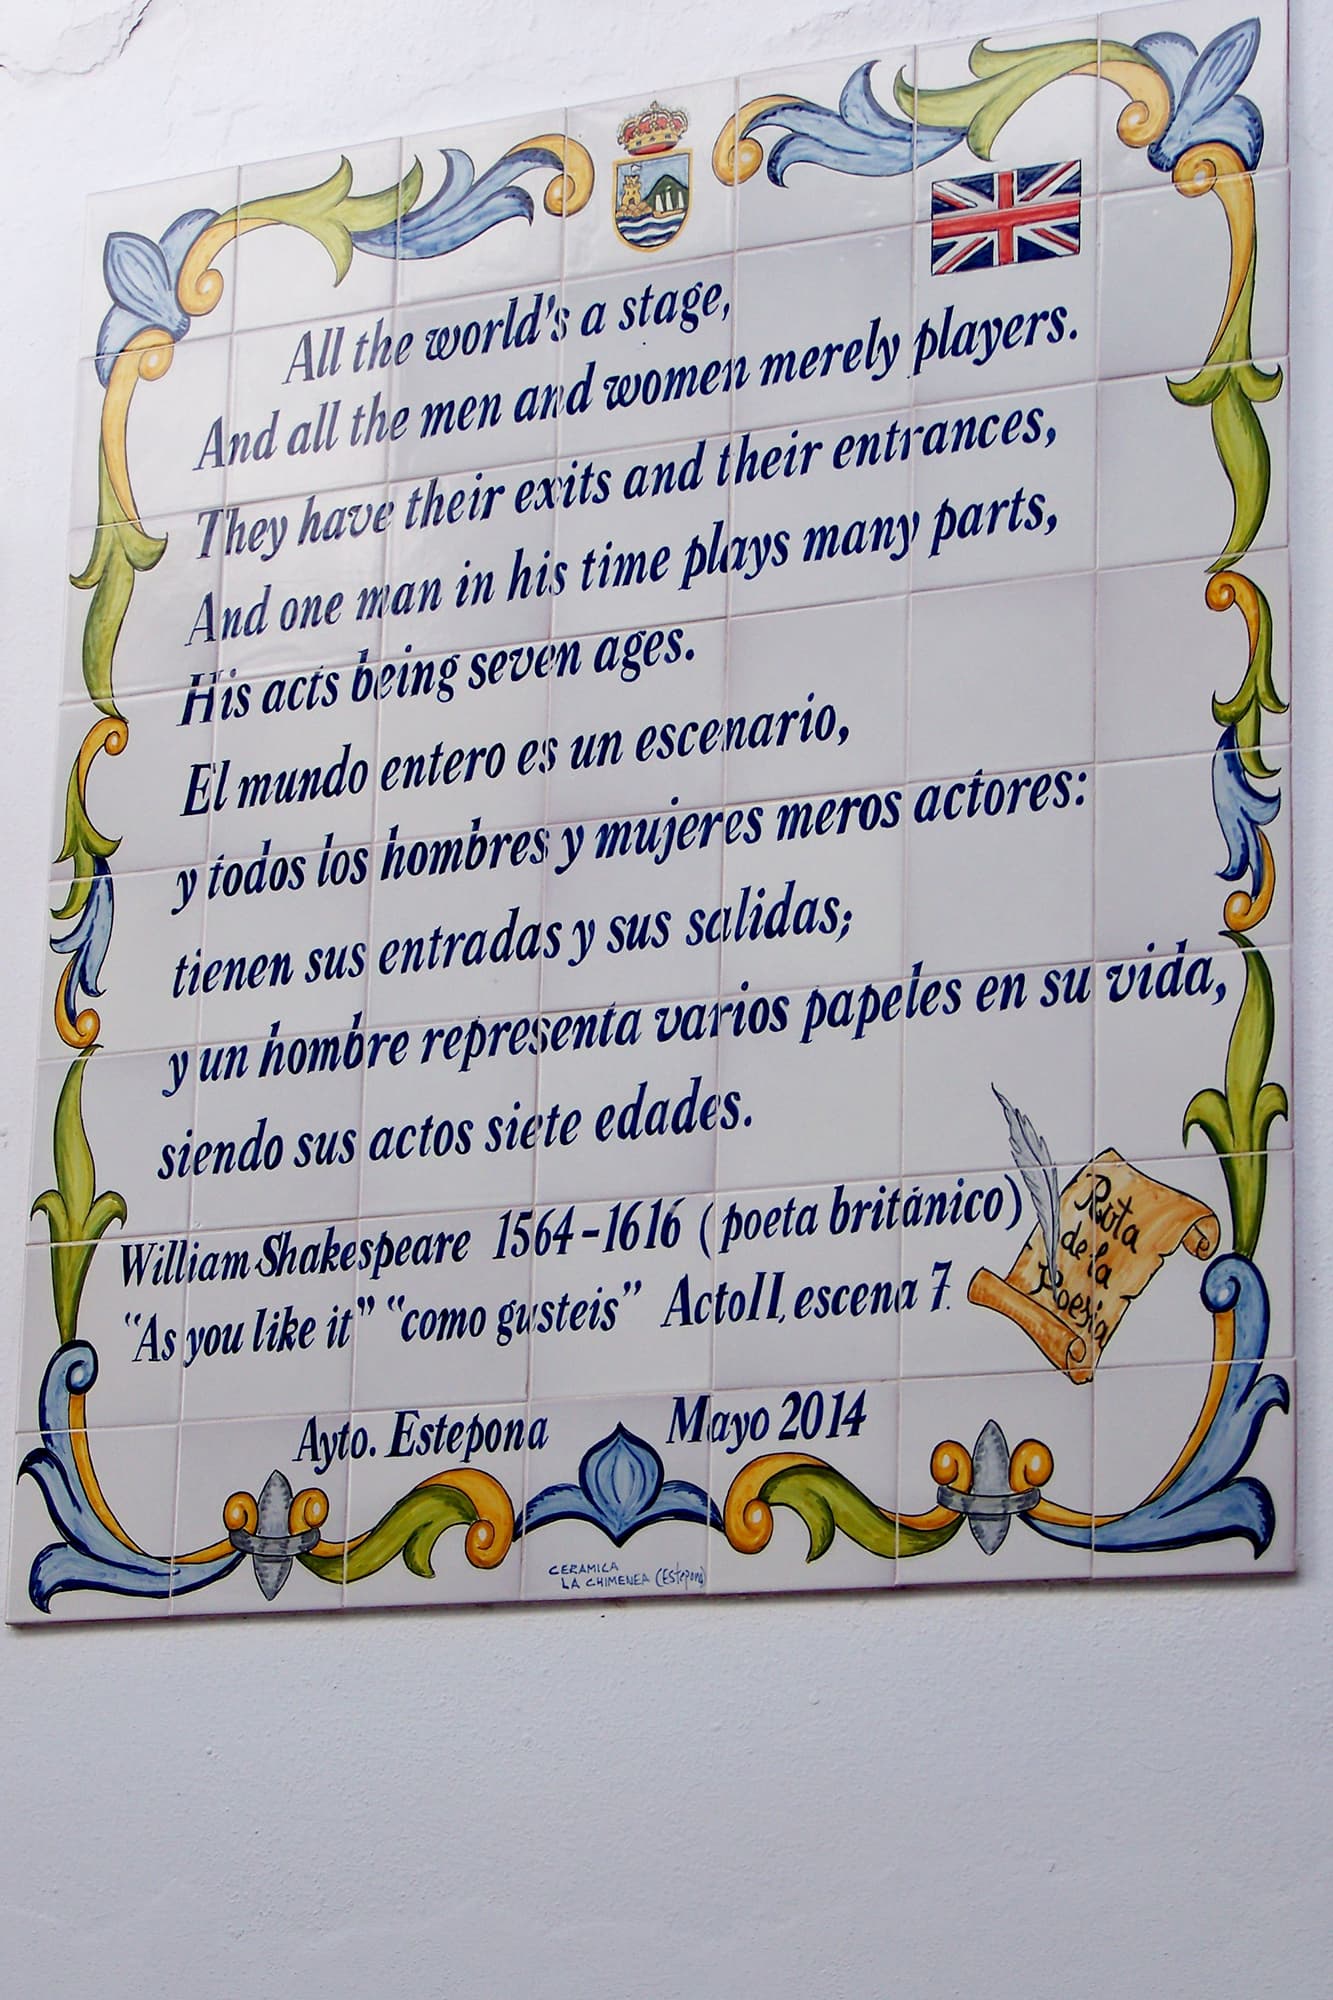 All the world's a stage,
And all the men and women merely players.
They have their exits and their entrances,
And one man in his time plays many parts,
His acts being seven ages.
El mundo entero es un escenario,
y todos los hombres y mujeres meros actores:
tienen sus entradas y sus salidas;
y un hombre representa varios papeles en su vida,
siendo sus actos siete edades.
William Shakespeare 1564-1616 (poeta británico)
"As you like it" "como gusteis" Acto II, escena 7.
Ruta
de la
Poesia
Ayto. Estepona Mayo 2014
CERAMICA
LA CHIMENEA (Estepona)